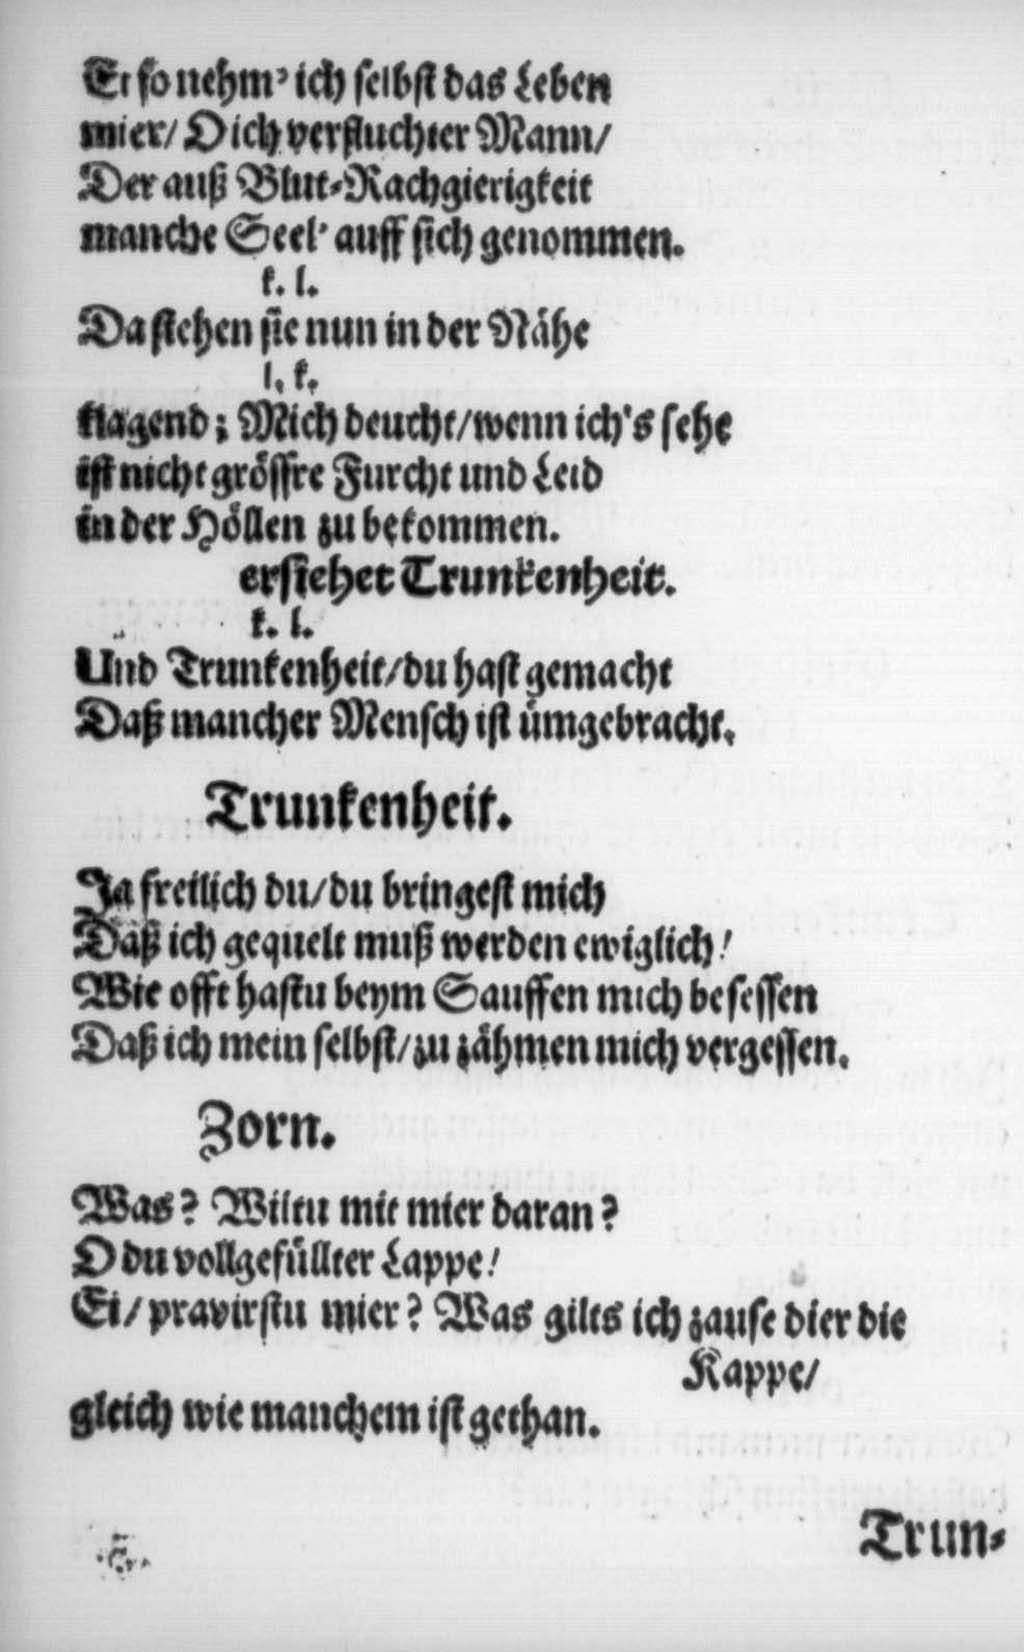 Ei so nehm' ich selbst das Leben
mier/ Dich verfluchter Mann/
Der auß Blut-Rachgierigkeit
manche Seel' auff sich genommen.
k. l.
Da stehen sie nun in der Nähe
l. k.
klagend; Mich deucht/wenn ich's sehe
ist nicht grössre Furcht und Leid
in der Höllen zu bekommen.
ersiehet Trunkenheit.
k. l.
Und Trunkenheit/du hast gemacht
Daß mancher Mensch ist ümgebracht.
Trunkenheit.
Ja freilich du/du bringest mich
Daß ich gequelt muß werden ewiglich!
Wie offt hastu beym Sauffen mich besessen
Daß ich mein selbst/zu zähmen mich vergessen.
Zorn.
Was? Wiltu mit mier daran?
O du vollgefüllter Lappe!
Ei/ pravirstu mier? Was gilts ich zause dier die
Kappe/
gleich wie manchem ist gethan.
Trun-